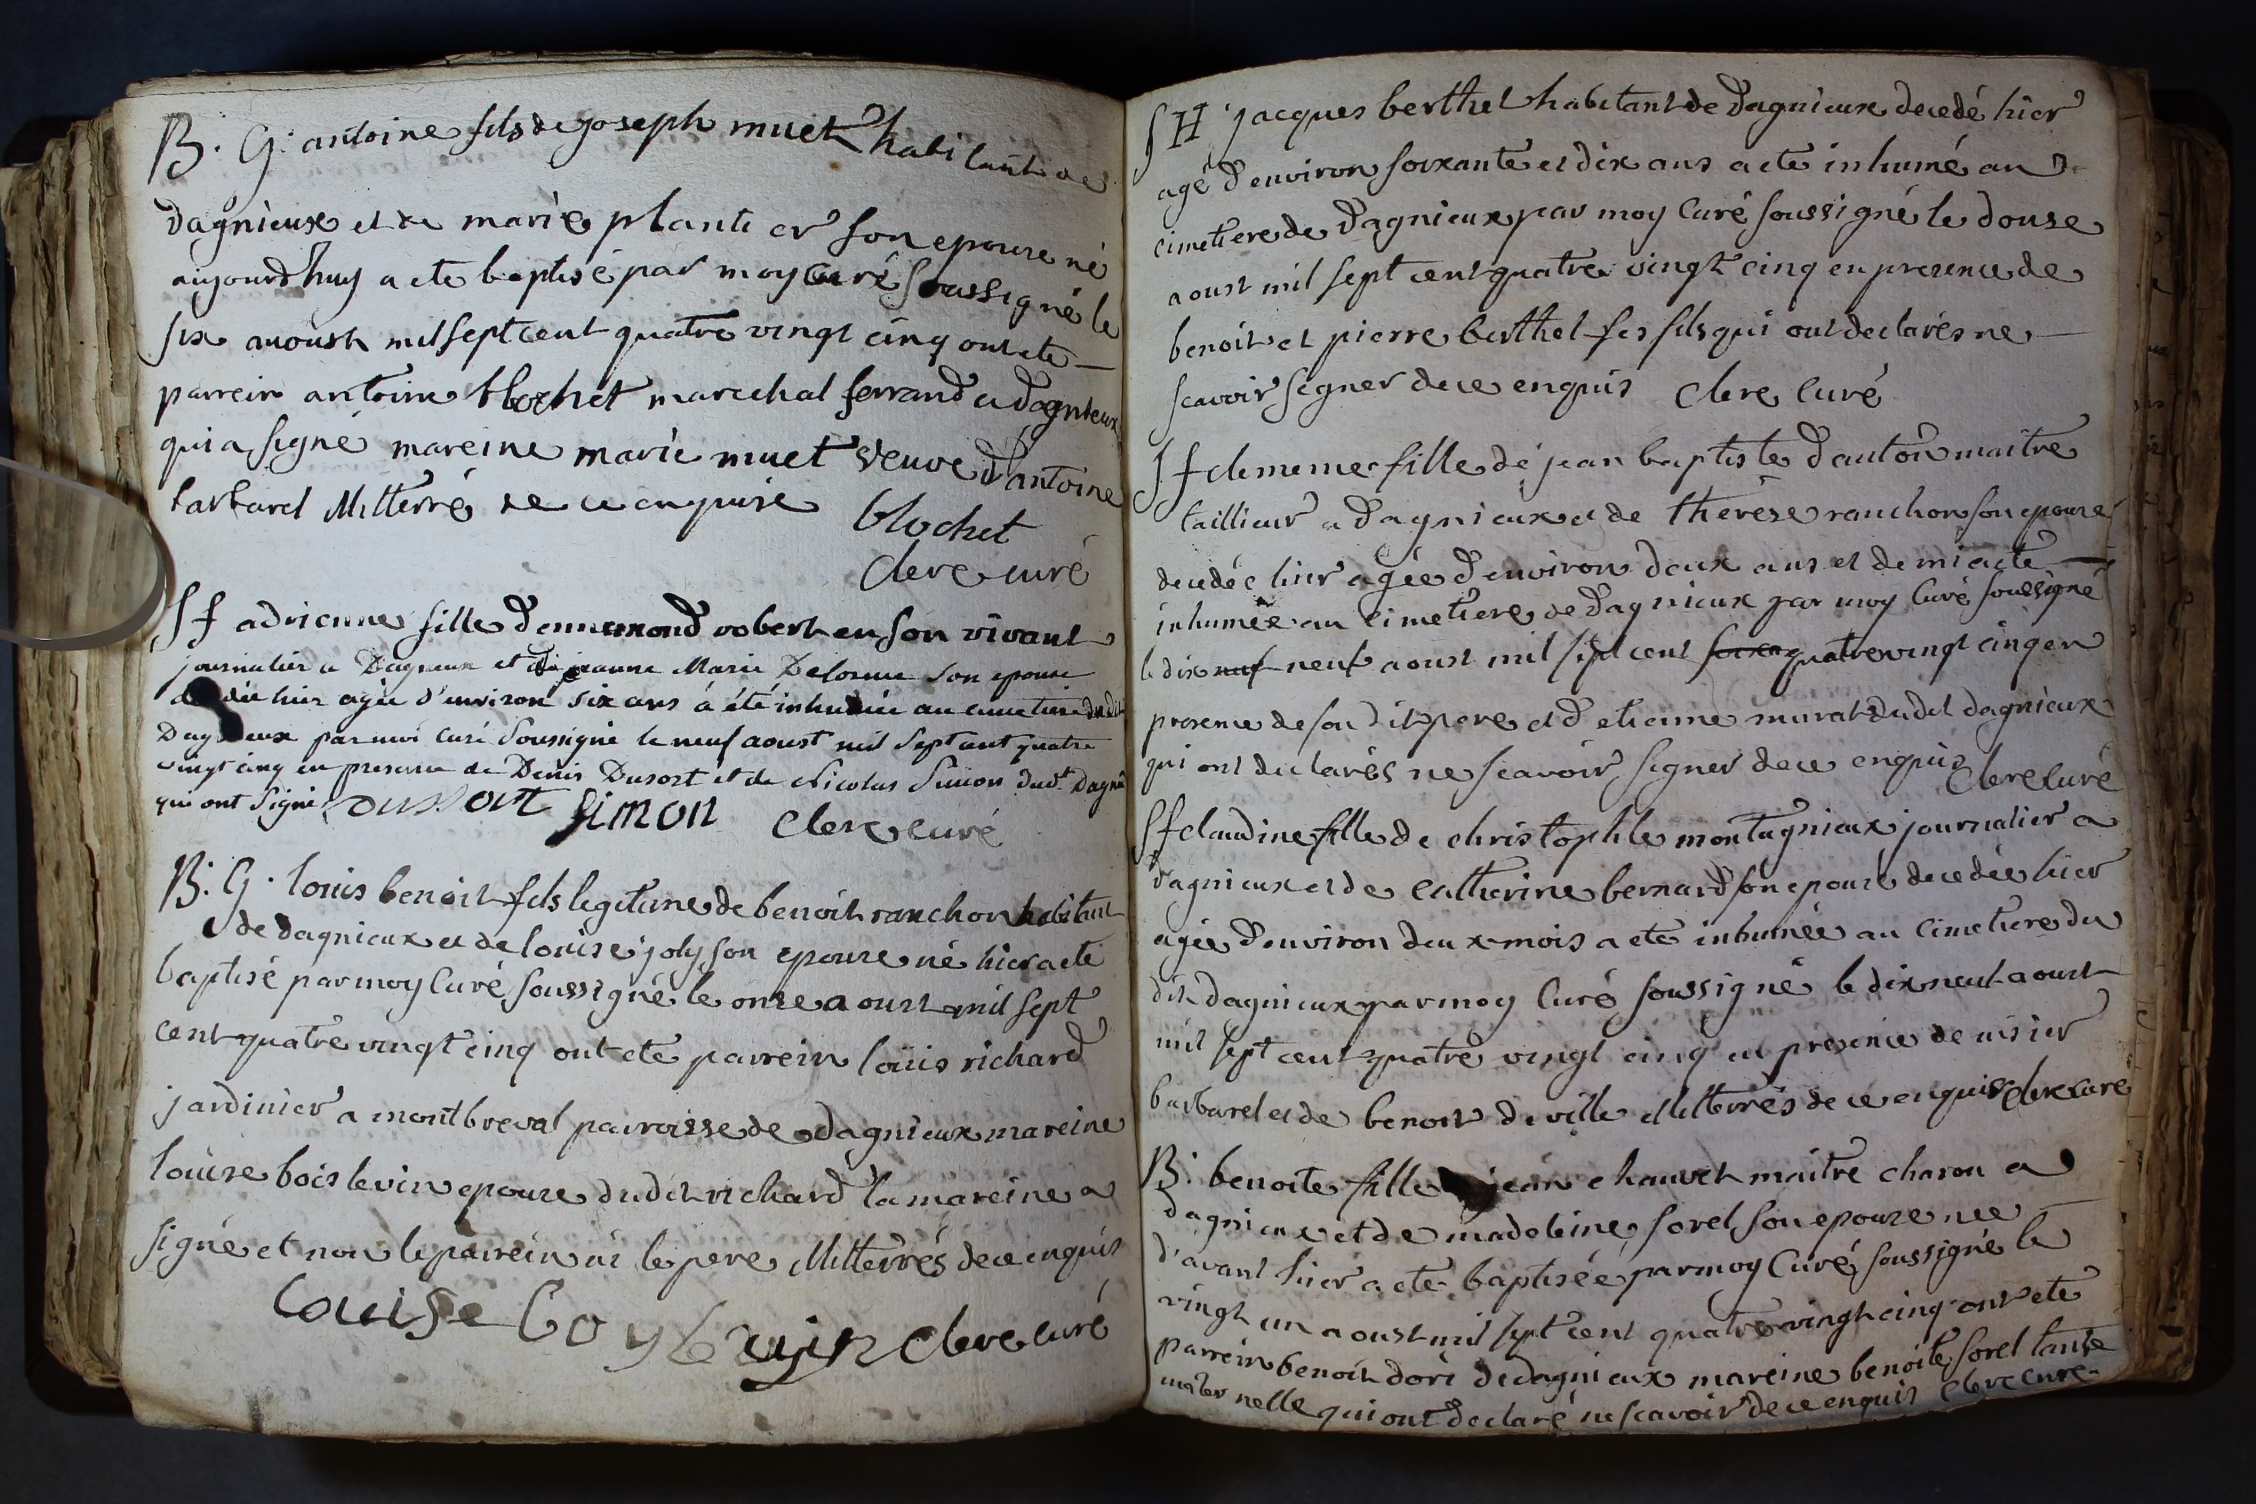 B. G. antoine fils de joseph muet habitant de
dagnieux et de marie plantier son epouze né
aujourdhuy a ete baptisé par moy curé soussigné le
six aoust mil sept cent quatre vingt cinq ont ete
parrein antoine blochet marechal ferrand a dagnieux
qui a signé mareine marie muet veuve d'antoine
barbarel illitterré de ce enquise
blochet
clere curé
S f adrienne fille d'ennemond robert en son vivant
journalier a Dagneux et de jeanne Marie Delorme son epouse
décédée hier agée d'environ six ans a été inhumée au cimetiere dudit
Dagneux par moi curé soussigné le neuf aoust mil sept cent quatre
vingt cinq en presence de Denis Dusort et de Nicolas Simon dudt Dagnx
qui ont signé dussort simon clere curé
B. G. louis benoit fils legitime de benoit ranchon habitant
de dagnieux et de louise joly son epouze né hier a ete
baptisé par moy curé soussigné le onze aoust mil sept
cent quatre vingt cinq ont ete parrein louis richard
jardinier a montbreval parroisse de dagnieux mareine
louise boislevin epouze dudit richard la mareine a
signé et non le parrein ni le pere illitterrés de ce enquis
louise boylevin clere curé
S H jacques berthet habitant de dagnieux decedé hier
agé d'environ soixante et dix ans a ete inhumé au
cimetiere de dagnieux par moy curé soussigné le douze
aoust mil sept cent quatre vingt cinq en presence de
benoit et pierre berthet ses fils qui ont declarés ne
scavoir signer de ce enquis clere curé
S f clemence fille de jean baptiste d'anton maitre
taillieur a dagnieux et de therese ranchon son epouze
decedée hier agée d'environ deux ans et demi a ete
inhumée au cimetiere de dagnieux par moy curé soussigné
le dix neuf neuf aoust mil sept cent soixa quatre vingt cinq en
presence de son dit pere et d'etienne murat dudit dagnieux
qui ont declarés ne scavoir signer de ce enquis clere curé
S f claudine fille de christophle montagnieux journalier a
dagnieux et de catherine bernard son epouze decedée hier
agée d'environ deux mois a ete inhumée au cimetiere du
dit dagnieux par moy curé soussigné le dix neuf aoust
mil sept cent quatre vingt cinq en presence de
barbarel et de benoit deville illitterrés de ce enquis clere curé
B. benoite fille jean chauvet maitre charon a
dagnieux et de madeleine sorel son epouze née
d'avant hier a ete baptisée par moy curé soussigné le
vingt un aoust mil sept cent quatre vingt cinq ont ete
parrein benoit dori de dagnieux mareine benoite sorel tante
maternelle qui ont declaré ne scavoir de ce enquis clere curé